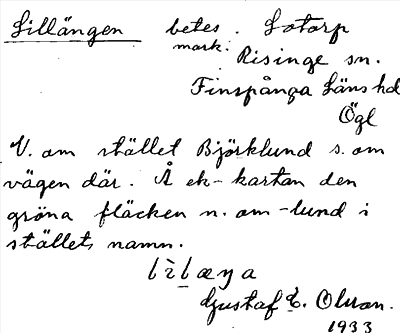 Lillängen betes . Lotorp
mark.
Risinge sn.
Finspånga läns hd
Ögl
V. om stället Björklund s. om
vägen där. Å ek-kartan den
gröna fläcken n. om -lund i
ställets namn.
Gustaf E. Olsson.
1933